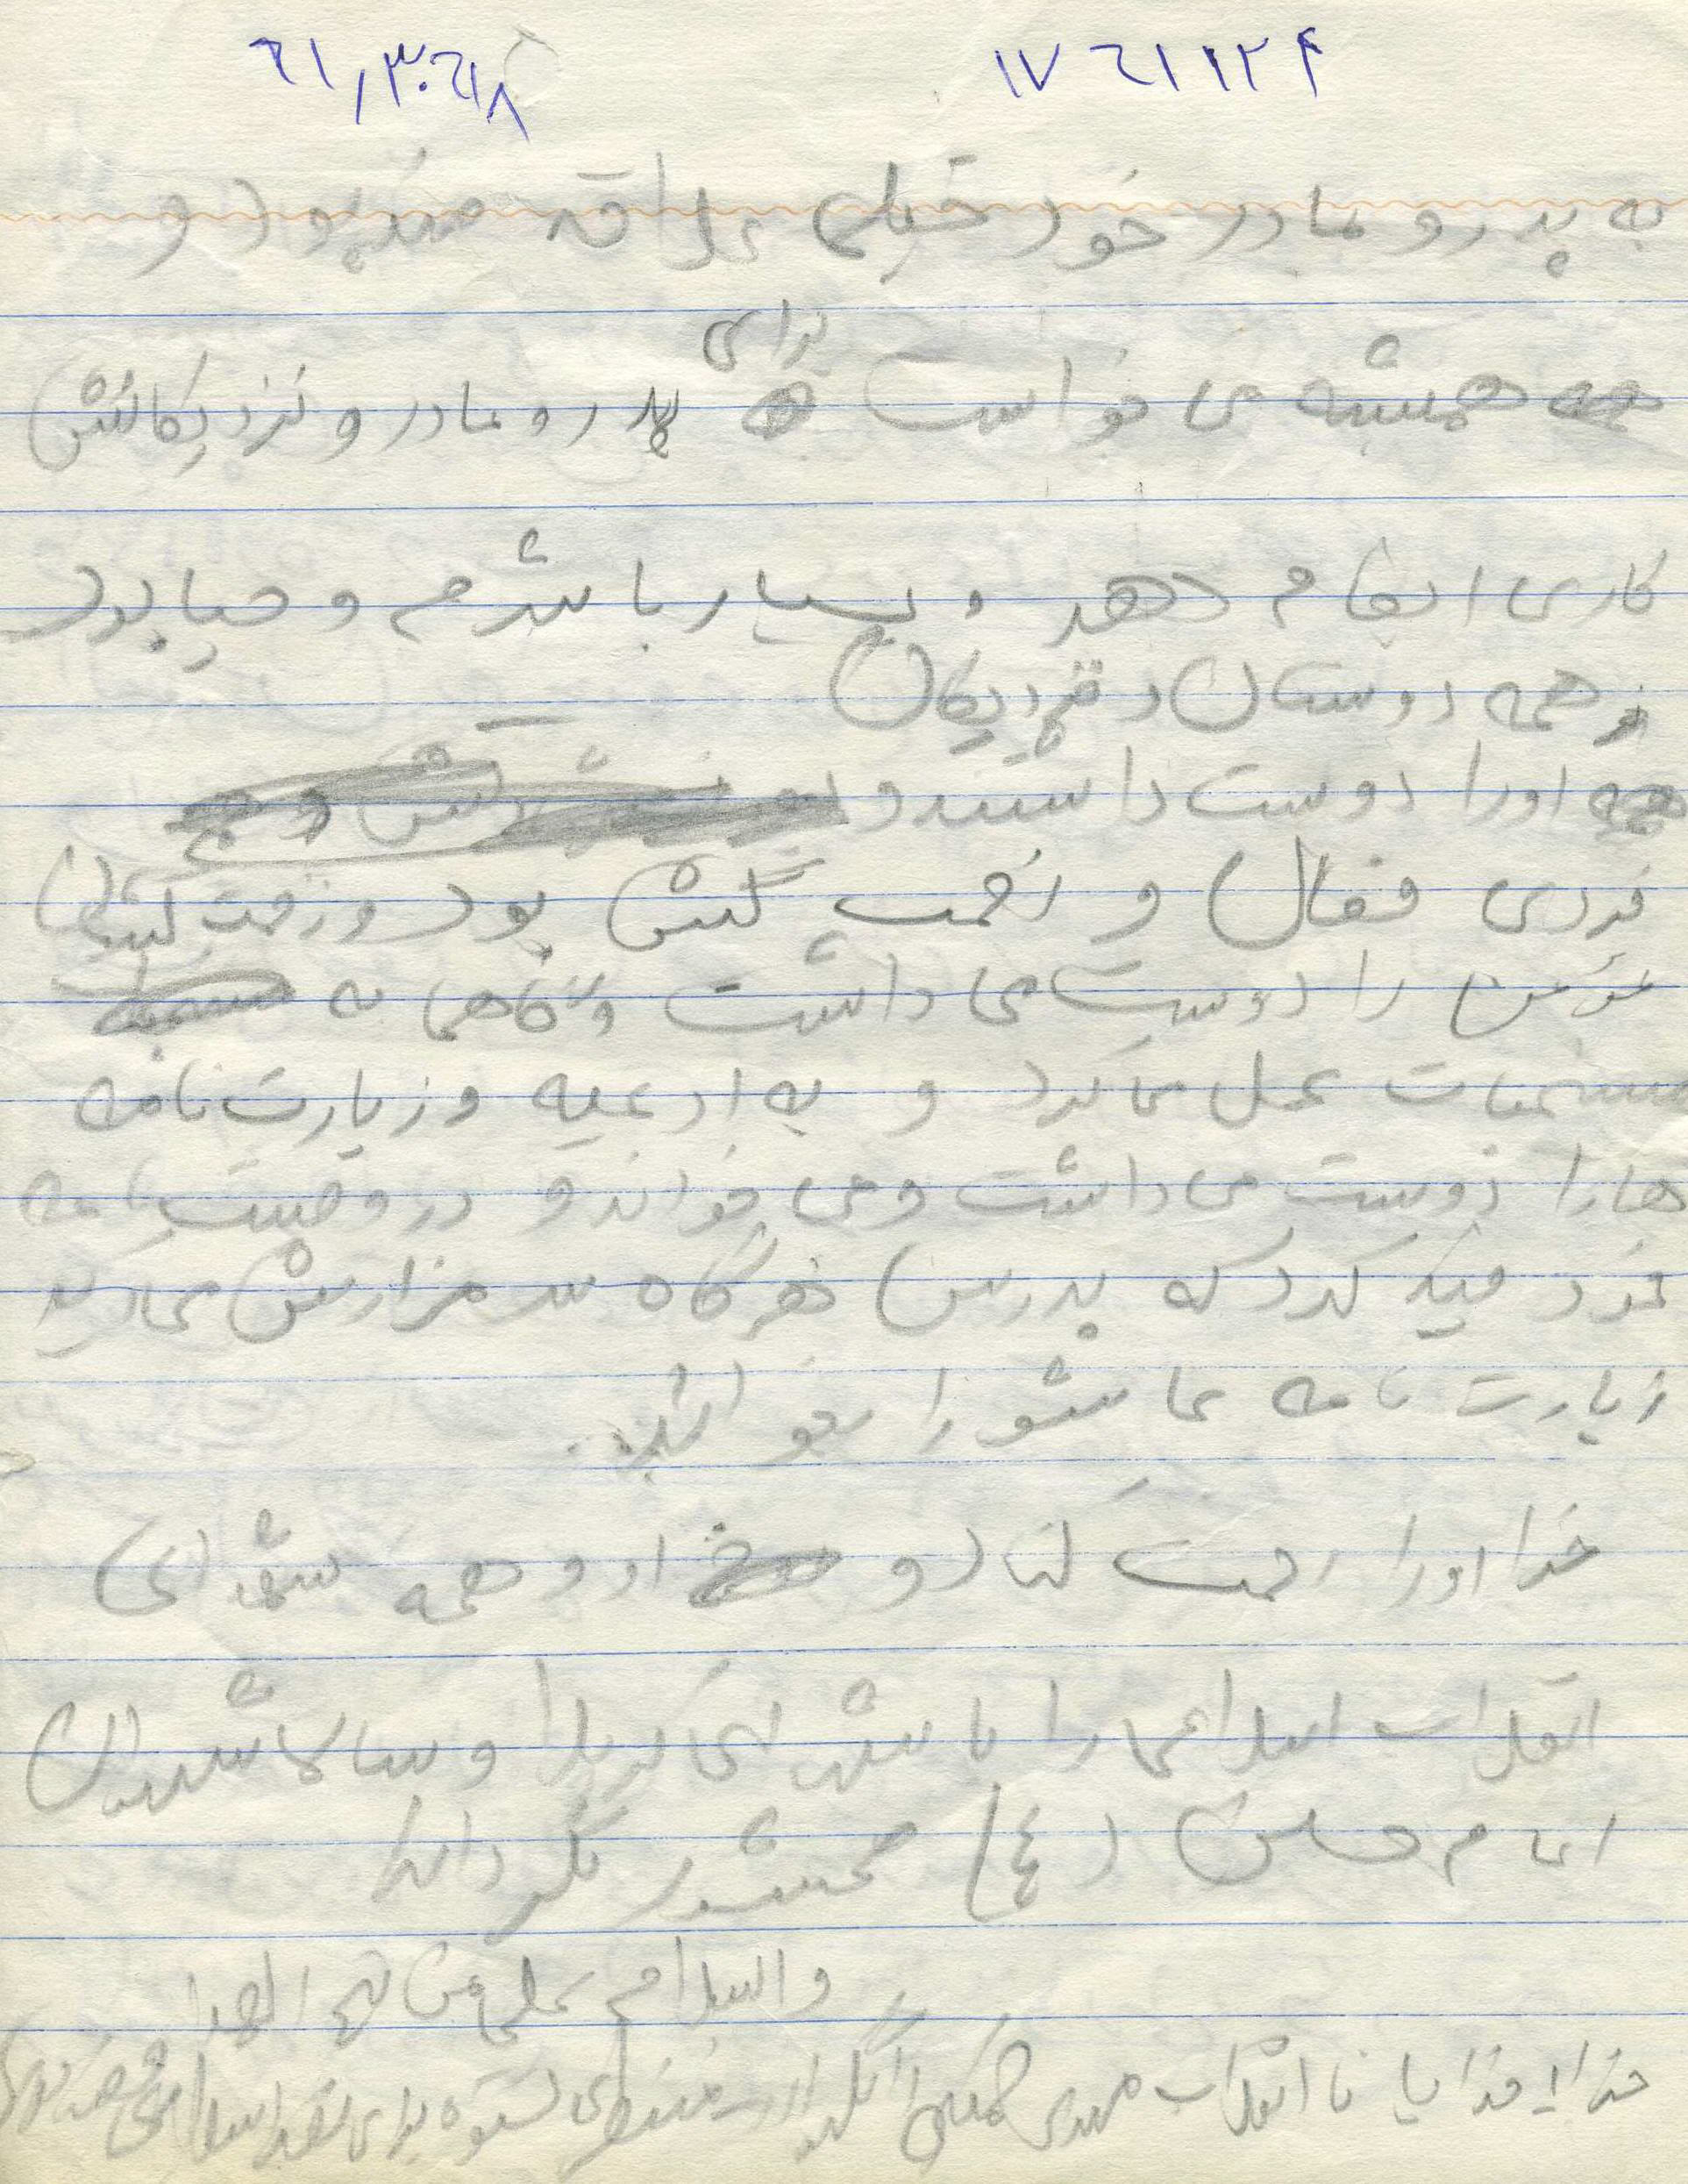 ۱۷۶۱۱۲۴
۶۱,۳۰۶۱۸
به پدر و مادر خود خیلی علاقه مند بود و
همیشه می خواست برای پدر و مادر و نزدیکانش
کاری انجام دهد و بسیار با شرم و حیا بود
و همه دوستان و نزدیکان
اورا دوست داشتند و
فردی فعال و زحمت کش بود و زحمت کشان
مؤمن را دوست می داشت و گاهی به
مستحبات عمل می کرد و به ادعیه و زیارت نامه
ها را دوست می داشت و می خواند و در وصیت نامه
خود قید کرد که پدرش هرگاه سر مزارش می آید
زیارت نامه عاشورا بخواند.
خدا اورا رحمت کناد و او و همه شهدای
انقلاب اسلامی را با شهدای کربلا و سالار شهیدان
امام حسین (ع) محشور بگرداند
والسلام علی من تبع الهدا
خدایا خدایا تا انقلاب مهدی خمینی را نگهدار